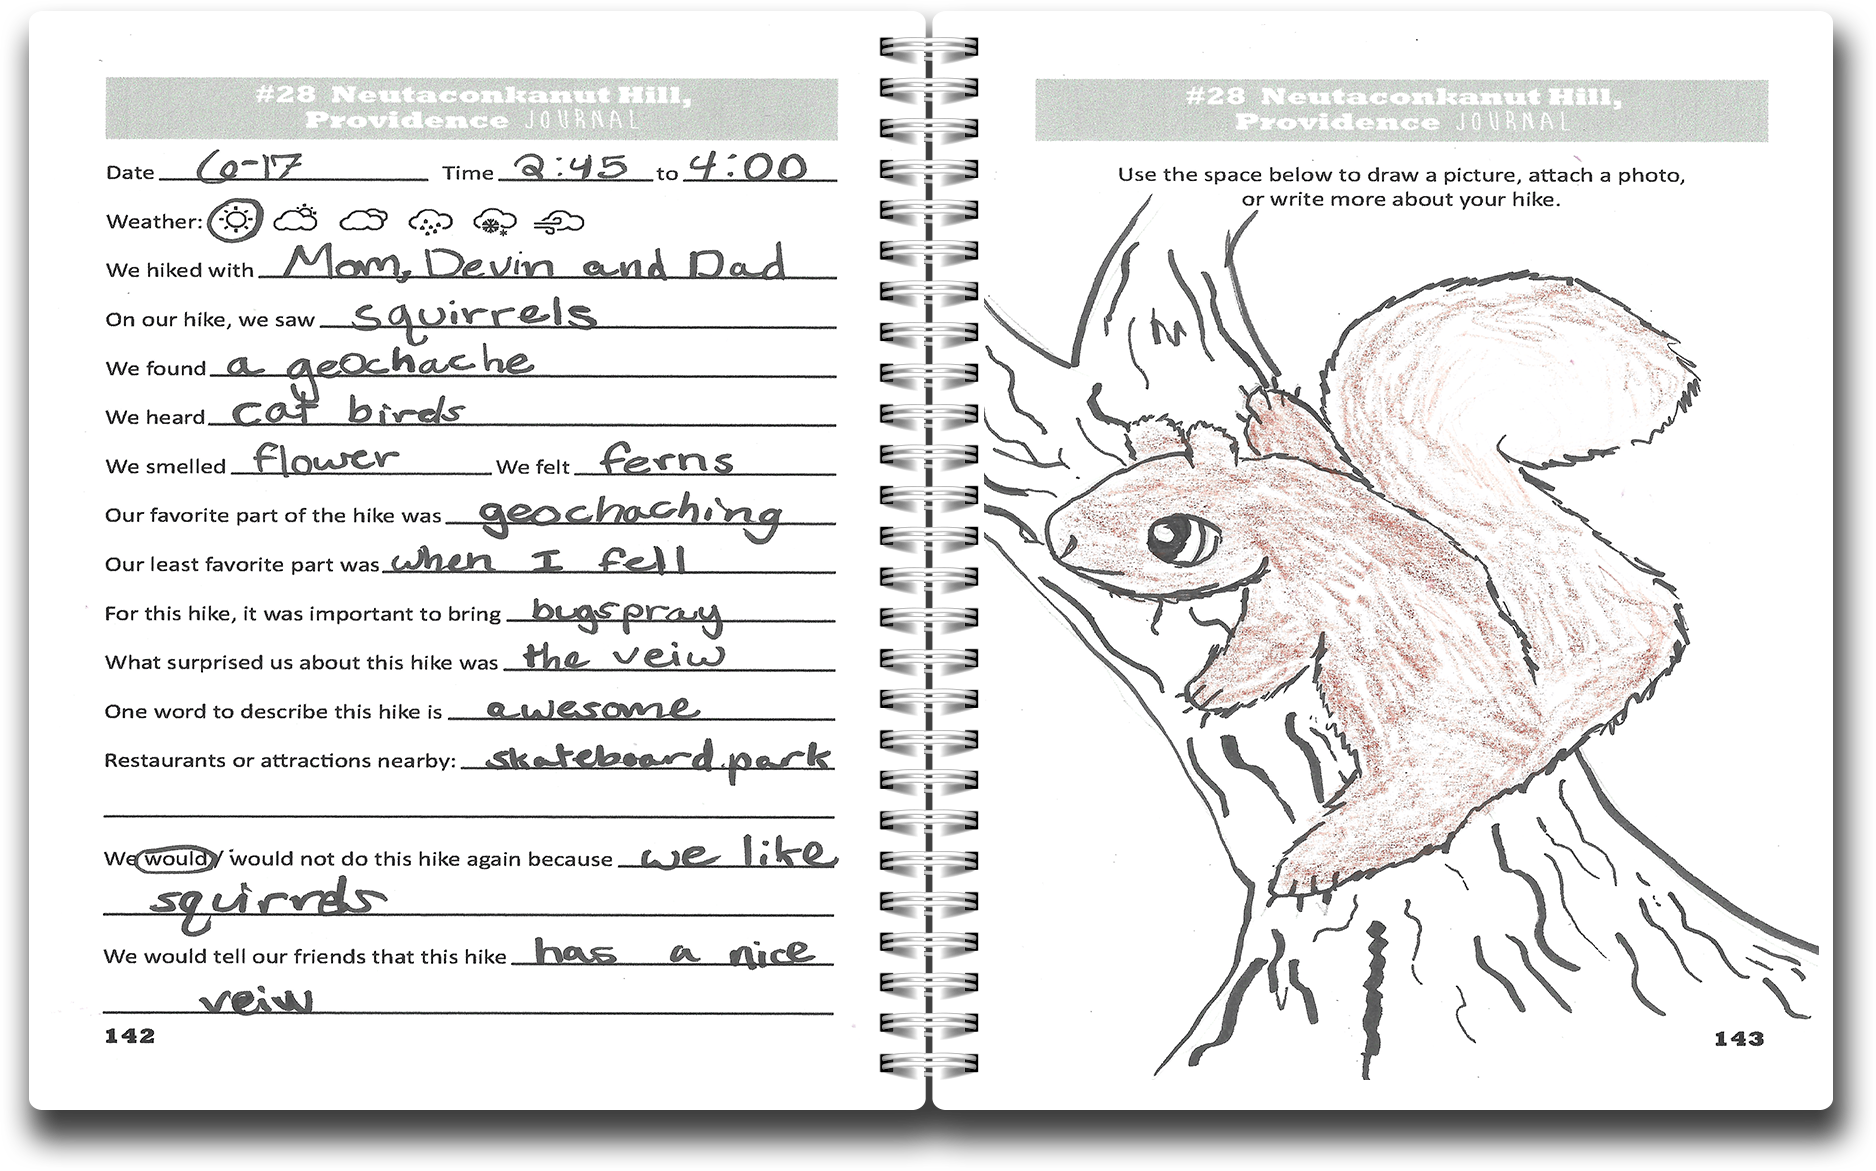 #28 Neutaconkanut Hill,
Providence JOURNAL
Date 6-17 Time 2:45 to 4:00
Weather:
We hiked with Mom, Devin and Dad
On our hike, we saw squirrels
We found a geochache
We heard cat birds
We smelled flower We felt ferns
Our favorite part of the hike was geochaching
Our least favorite part was when I fell
For this hike, it was important to bring bugspray
What surprised us about this hike was the veiw
One word to describe this hike is awesome
Restaurants or attractions nearby: skateboard park
We would / would not do this hike again because we like
squirrels
We would tell our friends that this hike has a nice
veiw
142
#28 Neutaconkanut Hill,
Providence JOURNAL
Use the space below to draw a picture, attach a photo,
or write more about your hike.
143